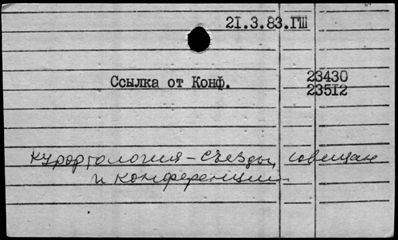 21.3.83.ГШ
Ссылка от Конф. 23430
23512
курортология – съезды, совещан
и конференции